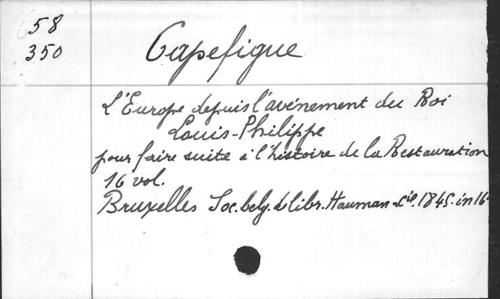 58
350
Capefigue
L'Europe depuis l'avénement du Roi
Louis-Philippe
pour faire suite à l'histoire de la Restauration
16 vol.
Bruxelles Soc. belg. d. libr. Hauman & Cie. 1845. in 16